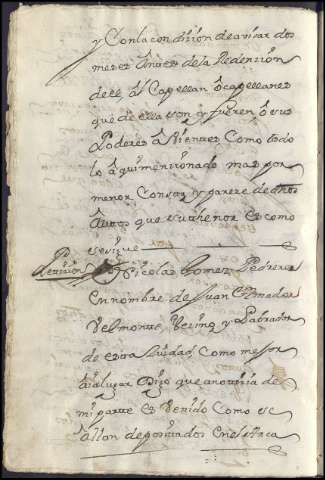 y Con la condizion de avisar dos
meses antes de la Redenzion
de el, al Capellan, o capellanes
que de ella son y fueren o sus
Poderes avientes Como todo
lo aqui menzionado mas por
menor Consta y pareze de dhos
Autos que su thenor es como
se sigue
Petizion Nicolas Gomez Pedrera
en nombre de Juan Amador
Velmonte, Vezino y Labrador
de esta Ziudad, Como mejor
aia lugar Digo que a notizia de
mi parte es Venido Como se
allan depositados en el Arca